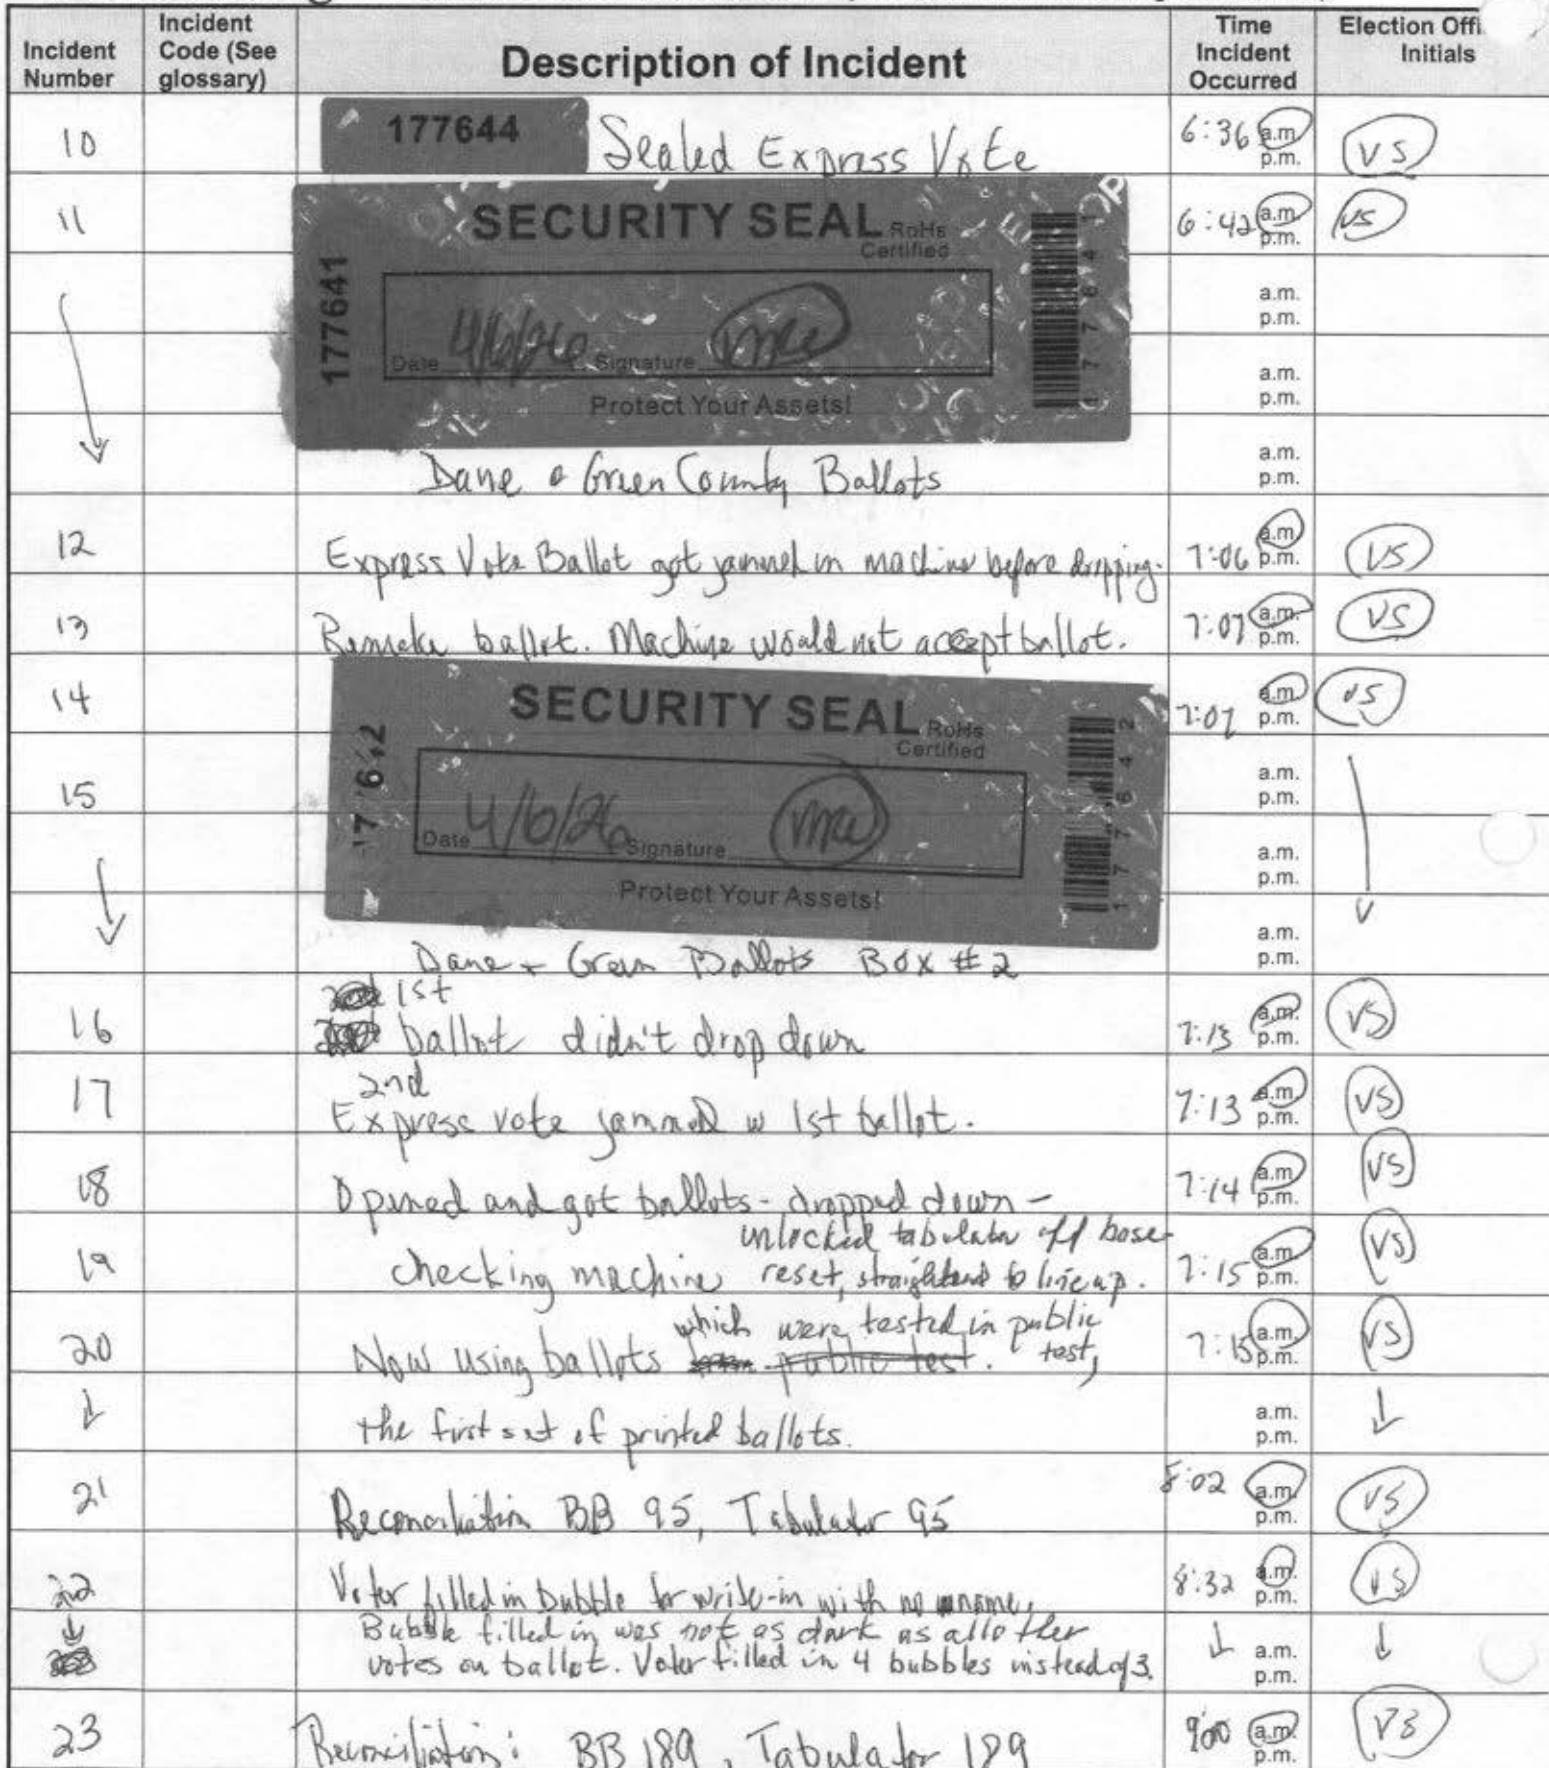 Incident Number
Incident Code (See glossary)
Description of Incident
Time Incident Occurred
Election Offi Initials
10 177644 Sealed Express Vote 6:36 a.m. p.m. VS
11 SECURITY SEAL RoHs Certified 6:42 a.m. p.m. VS
177641
a.m. p.m.
Date 4/6/26 Signature
177641
a.m. p.m.
Protect Your Assets!
a.m. p.m.
Dane & Green County Ballots
12 Express Vote Ballot got jammed in machine before dropping. 7:06 a.m. p.m. VS
13 Remake ballot. Machine would not accept ballot. 7:07 a.m. p.m. VS
14 SECURITY SEAL RoHs Certified 7:07 a.m. p.m. VS
177642
15 a.m. p.m.
Date 4/6/26 Signature
177642
a.m. p.m.
Protect Your Assets!
a.m. p.m.
Dane + Green Ballots Box #2
1st
16 ballot didn't drop down 7:13 a.m. p.m. VS
2nd
17 Express vote jammed w 1st ballot. 7:13 a.m. p.m. VS
18 Opened and got ballots - dropped down - 7:14 a.m. p.m. VS
unlocked tabulator off base-
19 checking machine reset, straightened to line up. 7:15 a.m. p.m. VS
which were tested in public
20 Now using ballots public test. test, 7:15 a.m. p.m. VS
the first set of printed ballots. a.m. p.m.
21 Reconciliation BB 95, Tabulator 95 8:02 a.m. p.m. VS
22 Voter filled in bubble for write-in with no name. 8:32 a.m. p.m. VS
Bubble filled in was not as dark as all other
votes on ballot. Voter filled in 4 bubbles instead of 3. a.m. p.m.
23 Reconciliation: BB 189, Tabulator 189 9:00 a.m. p.m. VS